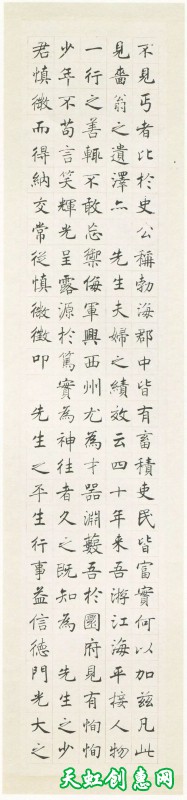 不見丐者比於史公稱勃海郡中皆有畜積吏民皆富實何以加茲凡此
見嗇翁之遺澤亦 先生夫婦之績效云四十年來吾游江海平接人物
一行之善輒不敢忘禦侮軍興西州尤為才器淵藪吾於圜府見有恂恂
少年不苟言笑輝光呈露源於篤實為神往者久之既知為 先生之少
君慎徵而得納交常從慎徵徵叩 先生之平生行事益信德門光大之
天虹创惠网
www.thcdb.com